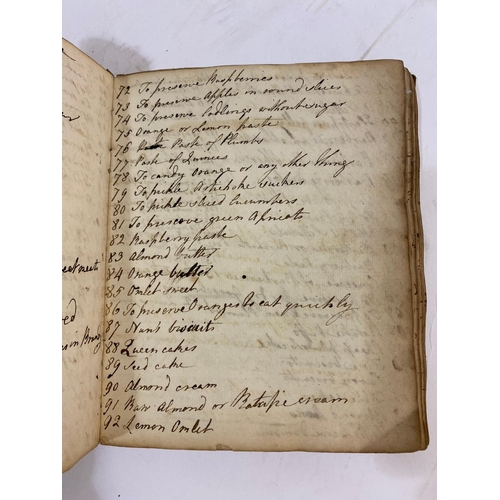 72 To preserve Raspberries
73 To preserve Apples in round slices
74 To preserve Codlings without sugar
75 Orange or Lemon paste
76 Paste of Plumbs
77 Paste of Quinces
78 To candy orange or any other thing
79 To pickle Artichoke suckers
80 To pickle sliced Cucumbers
81 To preserve green Apricots
82 Raspberry paste
83 Almond butter
84 Orange butter
85 Omlet sweet
86 To preserve Oranges to eat quickly
87 Nuns biscuits
88 Queen cakes
89 Seed cake
90 Almond cream
91 Raw Almond or Ratafie cream
92 Lemon Omlet